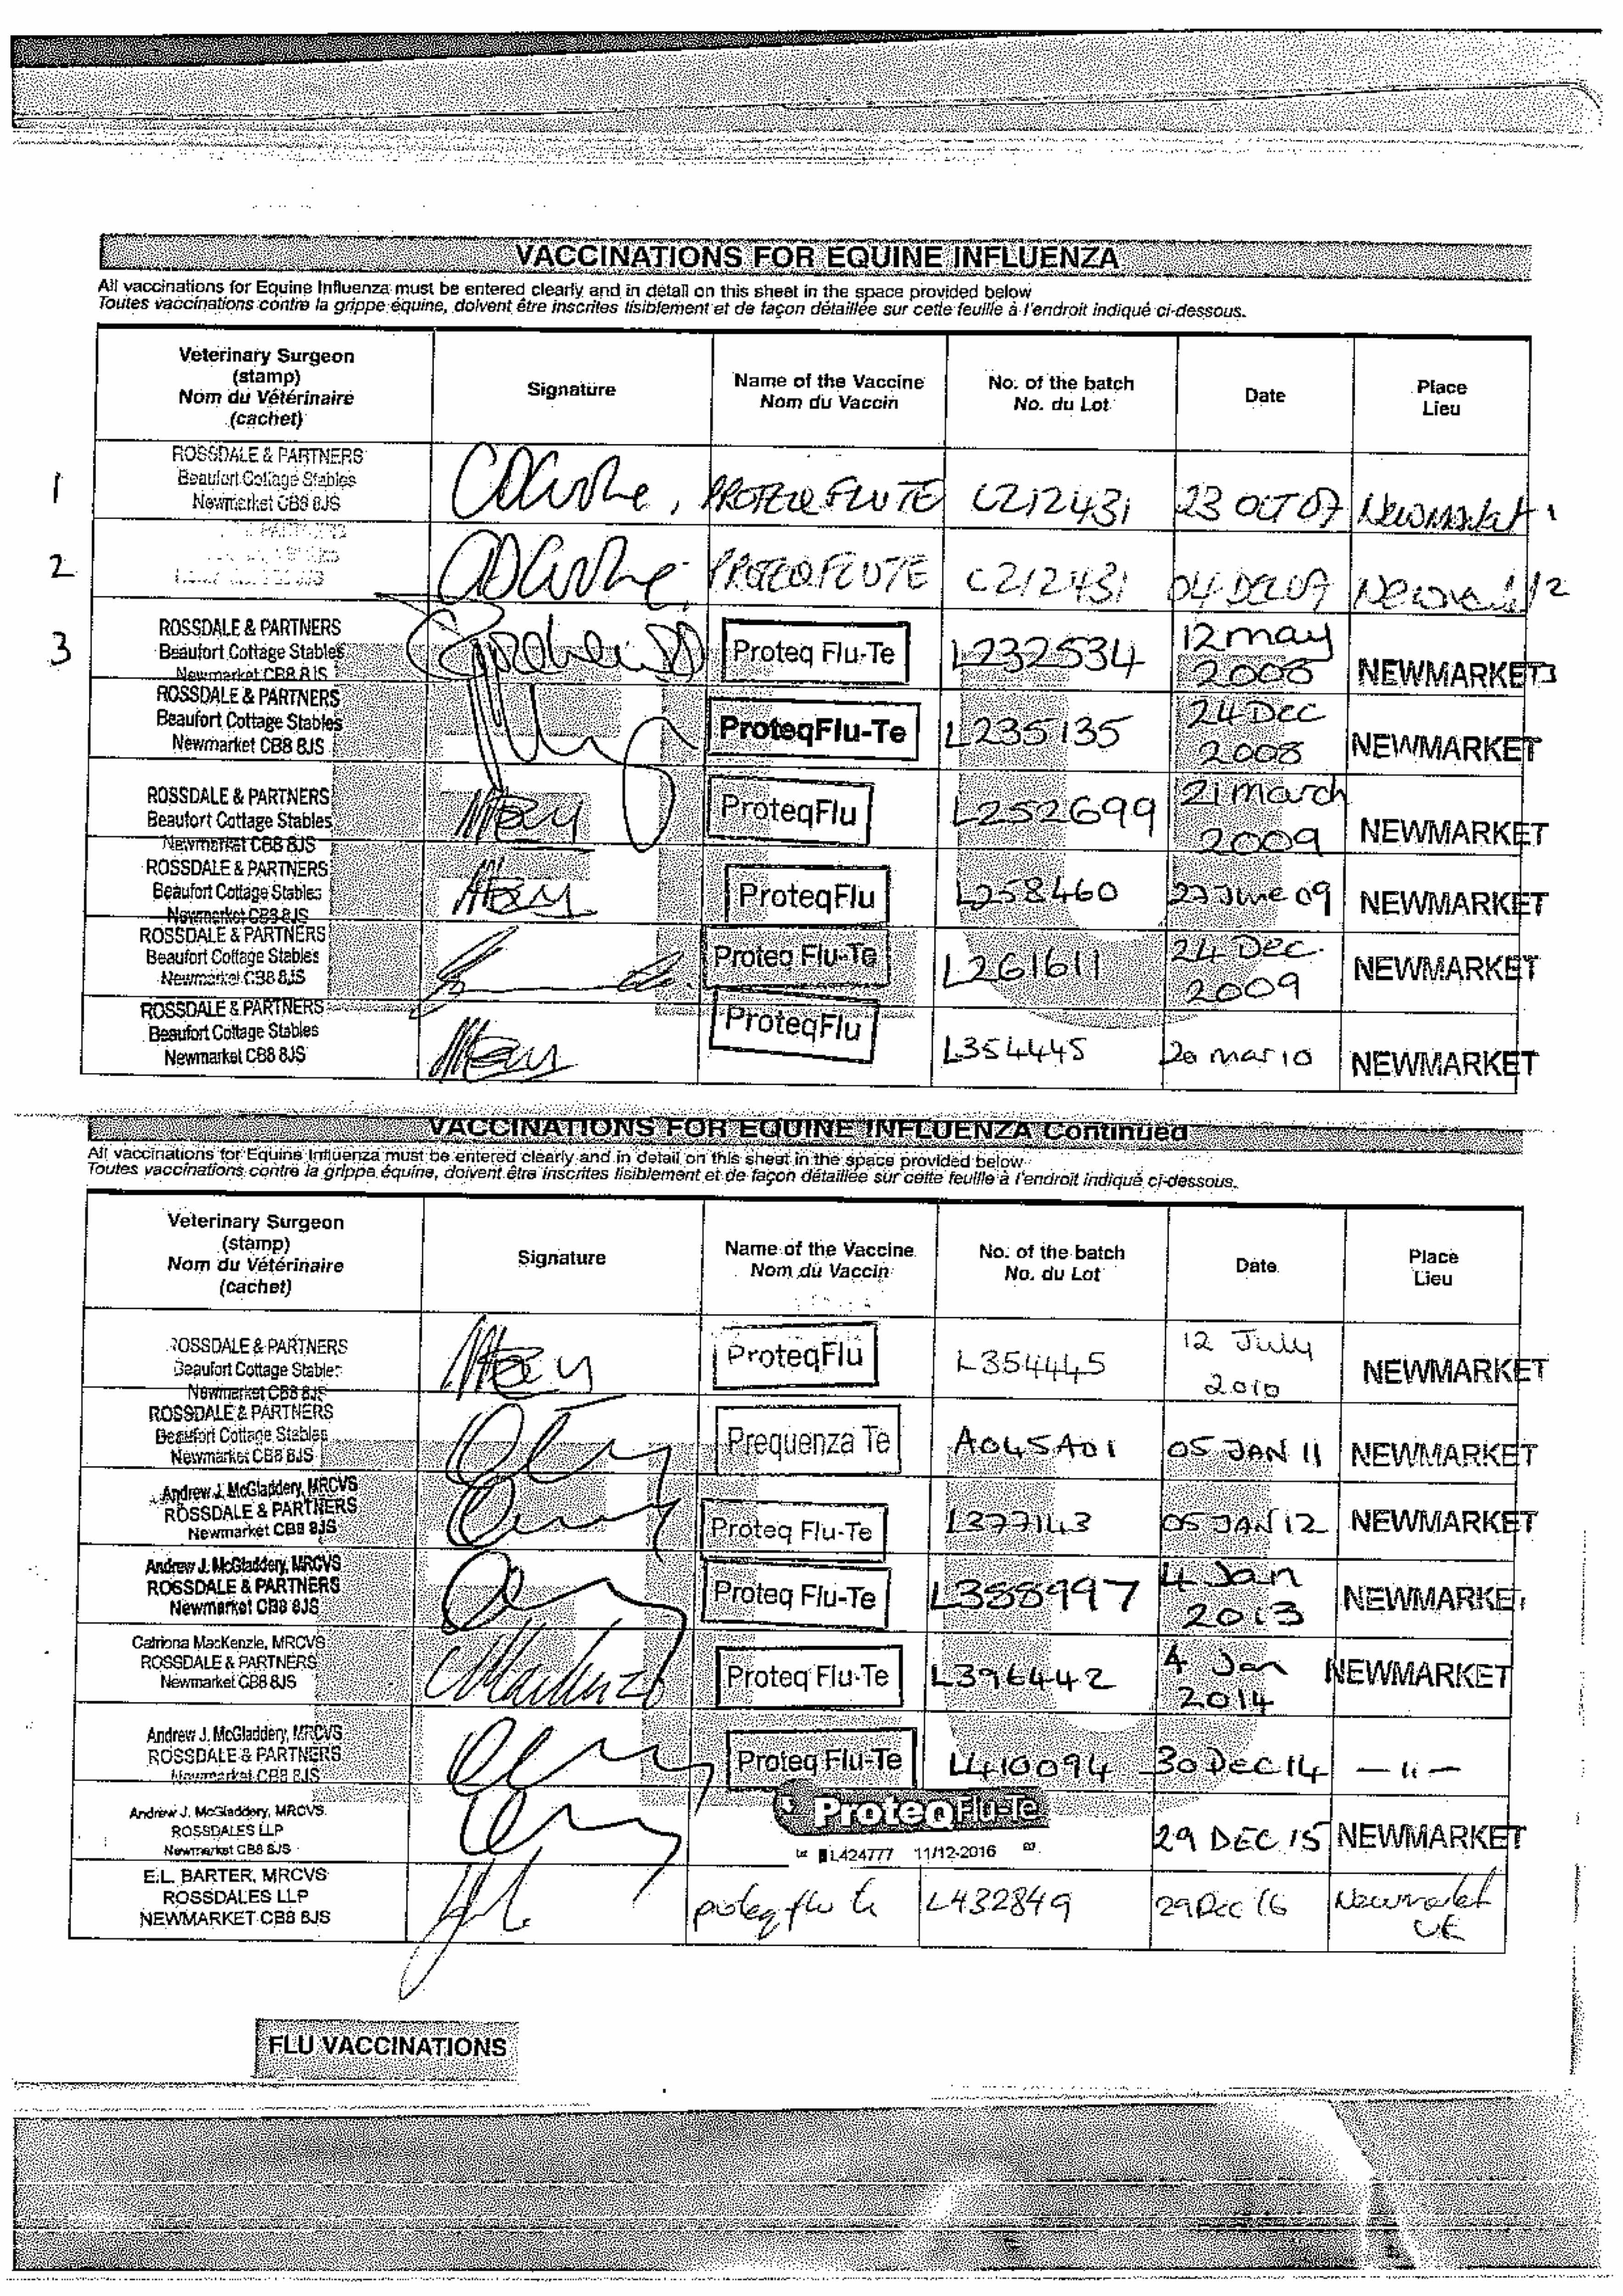 VACCINATIONS FOR EQUINE INFLUENZA
All vaccinations for Equine Influenza must be entered clearly and in detail on this sheet in the space provided below
Toutes vaccinations contre la grippe équine, doivent être inscrites lisiblement et de façon détaillée sur cette feuille à l'endroit indiqué ci-dessous.
Veterinary Surgeon (stamp) Nom du Vétérinaire (cachet)
Signature
Name of the Vaccine Nom du Vaccin
No. of the batch No. du Lot
Date
Place Lieu
1
ROSSDALE & PARTNERS
Beaufort Cottage Stables
Newmarket CB8 8JS
PROTEQ FLU TE L212431 23 OCT 07 Newmarket 1
2
PROTEQ FLU TE L212431 04 DEC 07 2
3
ROSSDALE & PARTNERS
Beaufort Cottage Stables
Newmarket CB8 8JS
Proteq Flu-Te L232534 12 may 2008 NEWMARKET 3
ROSSDALE & PARTNERS
Beaufort Cottage Stables
Newmarket CB8 8JS
ProteqFlu-Te L235135 24 Dec 2008 NEWMARKET
ROSSDALE & PARTNERS
Beaufort Cottage Stables
Newmarket CB8 8JS
ProteqFlu L252699 21 march 2009 NEWMARKET
ROSSDALE & PARTNERS
Beaufort Cottage Stables
Newmarket CB8 8JS
ProteqFlu L258460 June 09 NEWMARKET
ROSSDALE & PARTNERS
Beaufort Cottage Stables
Newmarket CB8 8JS
Proteq Flu-Te L261611 24 Dec 2009 NEWMARKET
ROSSDALE & PARTNERS
Beaufort Cottage Stables
Newmarket CB8 8JS
ProteqFlu L354445 20 mar 10 NEWMARKET
VACCINATIONS FOR EQUINE INFLUENZA Continued
All vaccinations for Equine Influenza must be entered clearly and in detail on this sheet in the space provided below
Toutes vaccinations contre la grippe équine, doivent être inscrites lisiblement et de façon détaillée sur cette feuille à l'endroit indiqué ci-dessous.
Veterinary Surgeon (stamp) Nom du Vétérinaire (cachet)
Signature
Name of the Vaccine Nom du Vaccin
No. of the batch No. du Lot
Date
Place Lieu
ROSSDALE & PARTNERS
Beaufort Cottage Stables
Newmarket CB8 8JS
ProteqFlu L354445 12 July 2010 NEWMARKET
ROSSDALE & PARTNERS
Beaufort Cottage Stables
Newmarket CB8 8JS
Prequenza Te A045A01 05 JAN 11 NEWMARKET
Andrew J. McGladdery, MRCVS
ROSSDALE & PARTNERS
Newmarket CB8 8JS
Proteq Flu-Te L377143 05 JAN 12 NEWMARKET
Andrew J. McGladdery, MRCVS
ROSSDALE & PARTNERS
Newmarket CB8 8JS
Proteq Flu-Te L388997 4 Jan 2013 NEWMARKET
Catriona MacKenzie, MRCVS
ROSSDALE & PARTNERS
Newmarket CB8 8JS
Proteq Flu-Te L396442 4 Jan 2014 NEWMARKET
Andrew J. McGladdery, MRCVS
ROSSDALE & PARTNERS
Newmarket CB8 8JS
Proteq Flu-Te L410094 30 Dec 14 — 11 —
Andrew J. McGladdery, MRCVS
ROSSDALES LLP
Newmarket CB8 8JS
ProteqFlu-Te
L424777 11/12-2016
29 DEC 15 NEWMARKET
E.L. BARTER, MRCVS
ROSSDALES LLP
NEWMARKET CB8 8JS
proteq flu te L432849 29 Dec 16 Newmarket UK
FLU VACCINATIONS